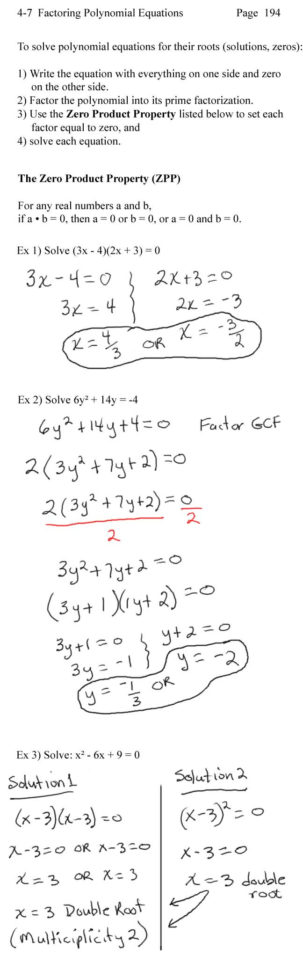 4-7 Factoring Polynomial Equations Page 194
To solve polynomial equations for their roots (solutions, zeros):
1) Write the equation with everything on one side and zero
on the other side.
2) Factor the polynomial into its prime factorization.
3) Use the Zero Product Property listed below to set each
factor equal to zero, and
4) solve each equation.
The Zero Product Property (ZPP)
For any real numbers a and b,
if a • b = 0, then a = 0 or b = 0, or a = 0 and b = 0.
Ex 1) Solve (3x - 4)(2x + 3) = 0
3x - 4 = 0 } 2x + 3 = 0
3x = 4 } 2x = -3
x = 4/3 OR x = -3/2
Ex 2) Solve 6y² + 14y = -4
6y² + 14y + 4 = 0 Factor GCF
2(3y² + 7y + 2) = 0
2(3y² + 7y + 2) = 0
2 2
3y² + 7y + 2 = 0
(3y + 1)(1y + 2) = 0
3y + 1 = 0 } y + 2 = 0
3y = -1 } y = -2
y = -1/3 OR
Ex 3) Solve: x² - 6x + 9 = 0
Solution 1
(x - 3)(x - 3) = 0
x - 3 = 0 OR x - 3 = 0
x = 3 OR x = 3
x = 3 Double Root
(multiciplicity 2)
Solution 2
(x - 3)² = 0
x - 3 = 0
x = 3 double
root